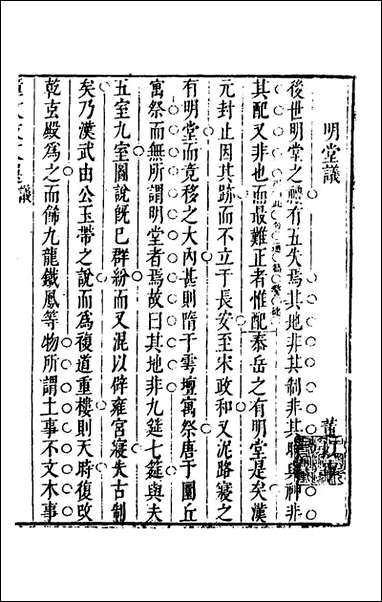 明堂議
董
後世明堂之禮有五失焉其地非其制非其時與神非
其配又非也而最難正者惟配泰岳之有明堂是矣漢
元封止因其跡而不立于長安至宋政和又泥路寢之
有明堂而竟移之大內甚則隋于雩壇寓祭唐于圜丘
寓祭而無所謂明堂者焉故曰其地非九筵七筵與夫
五室九室圖說既已羣紛而又混以辟雍宮寢失古制
矣乃漢武由公玉帶之說而為複道重樓則天時復改
乾元殿為之而飾九龍鐵鳳等物所謂土事不文木事
議